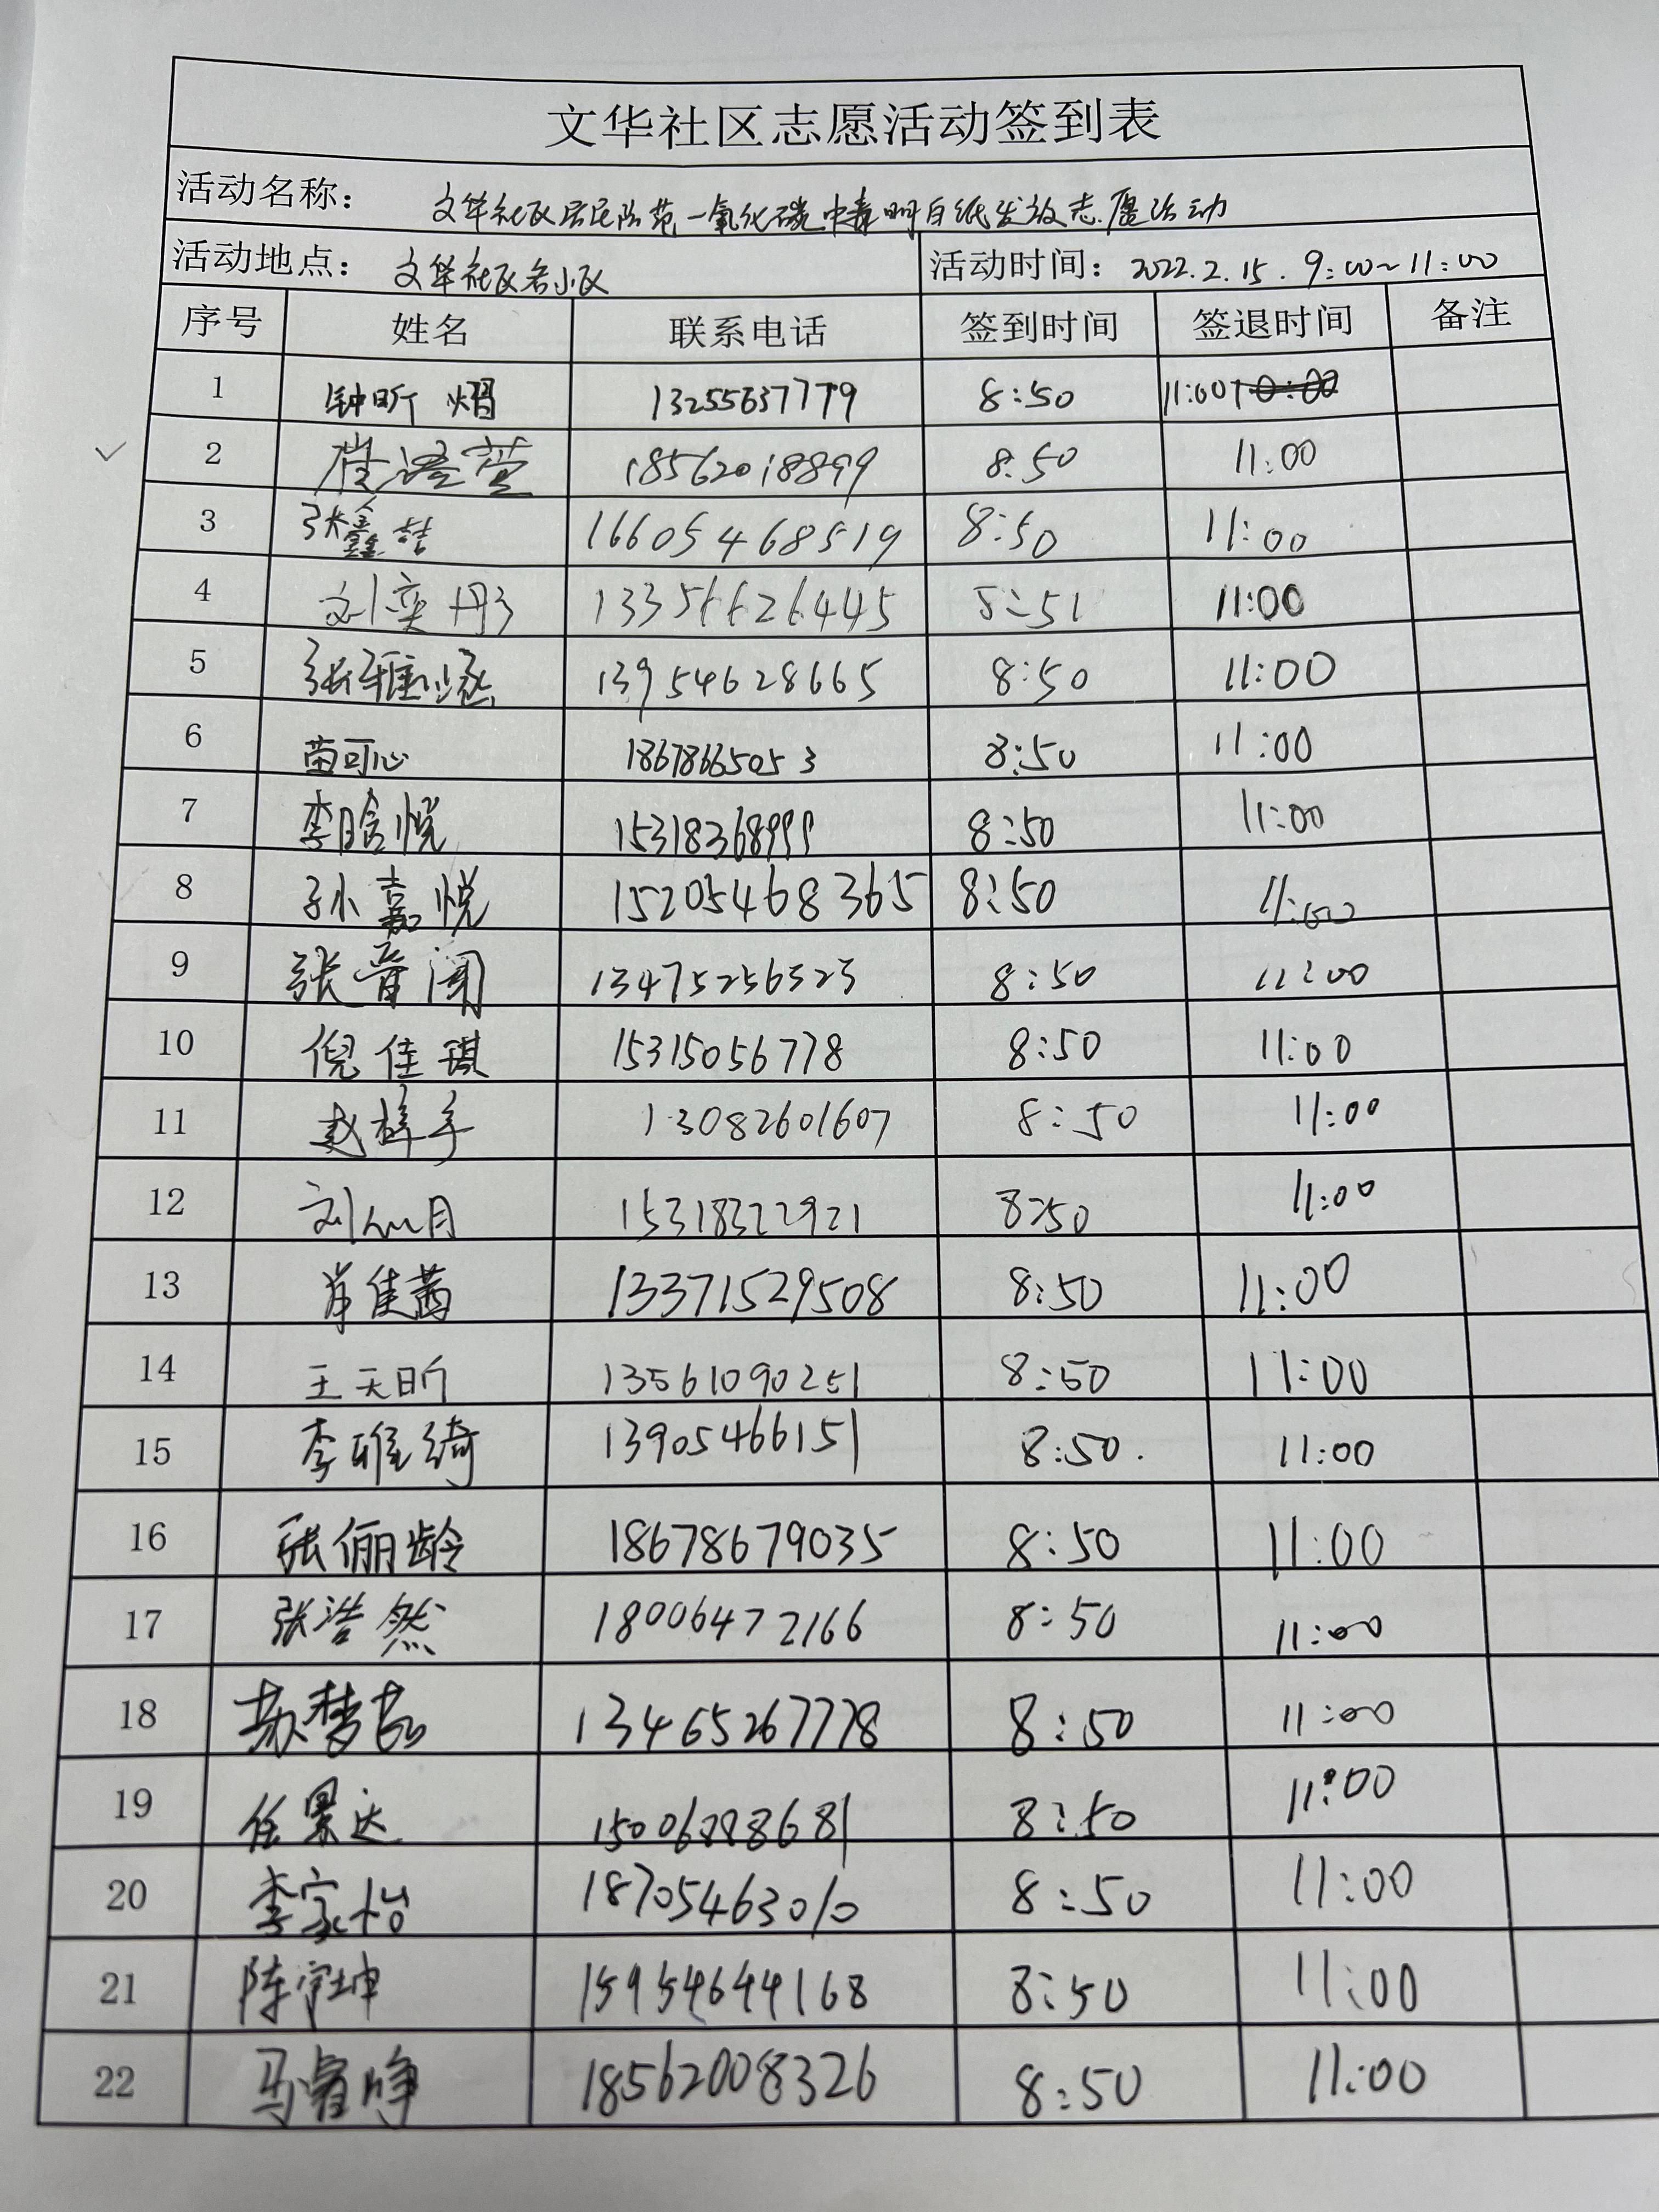 文华社区志愿活动签到表
活动名称： 文华社区居民防范一氧化碳中毒明白纸发放志愿活动
活动地点： 文华社区各小区 活动时间：2022.2.15. 9:00~11:00
序号 姓名 联系电话 签到时间 签退时间 备注
1 钟昕熠 13255637779 8:50 11:00
2 18562018899 8:50 11:00
3 张鑫喆 16605468519 8:50 11:00
4 刘奕彤 13356626445 8:51 11:00
5 张雅涵 13954628665 8:50 11:00
6 苗可心 18678665053 8:50 11:00
7 李晗悦 15318368999 8:50 11:00
8 孙嘉悦 15205468365 8:50 11:00
9 张晋闻 13475256523 8:50 11:00
10 倪佳琪 15315056778 8:50 11:00
11 赵梓宇 13082601607 8:50 11:00
12 刘心月 15318322921 8:50 11:00
13 肖佳茜 13371529508 8:50 11:00
14 王天昕 13561090251 8:50 11:00
15 李雅绮 13905466151 8:50. 11:00
16 张俪龄 18678679035 8:50 11:00
17 张浩然 18006472166 8:50 11:00
18 苏梦茹 13465267778 8:50 11:00
19 任景达 15006888681 8:50 11:00
20 李家怡 18705463010 8:50 11:00
21 陈宇坤 15954644168 8:50 11:00
22 马睿峥 18562008326 8:50 11:00